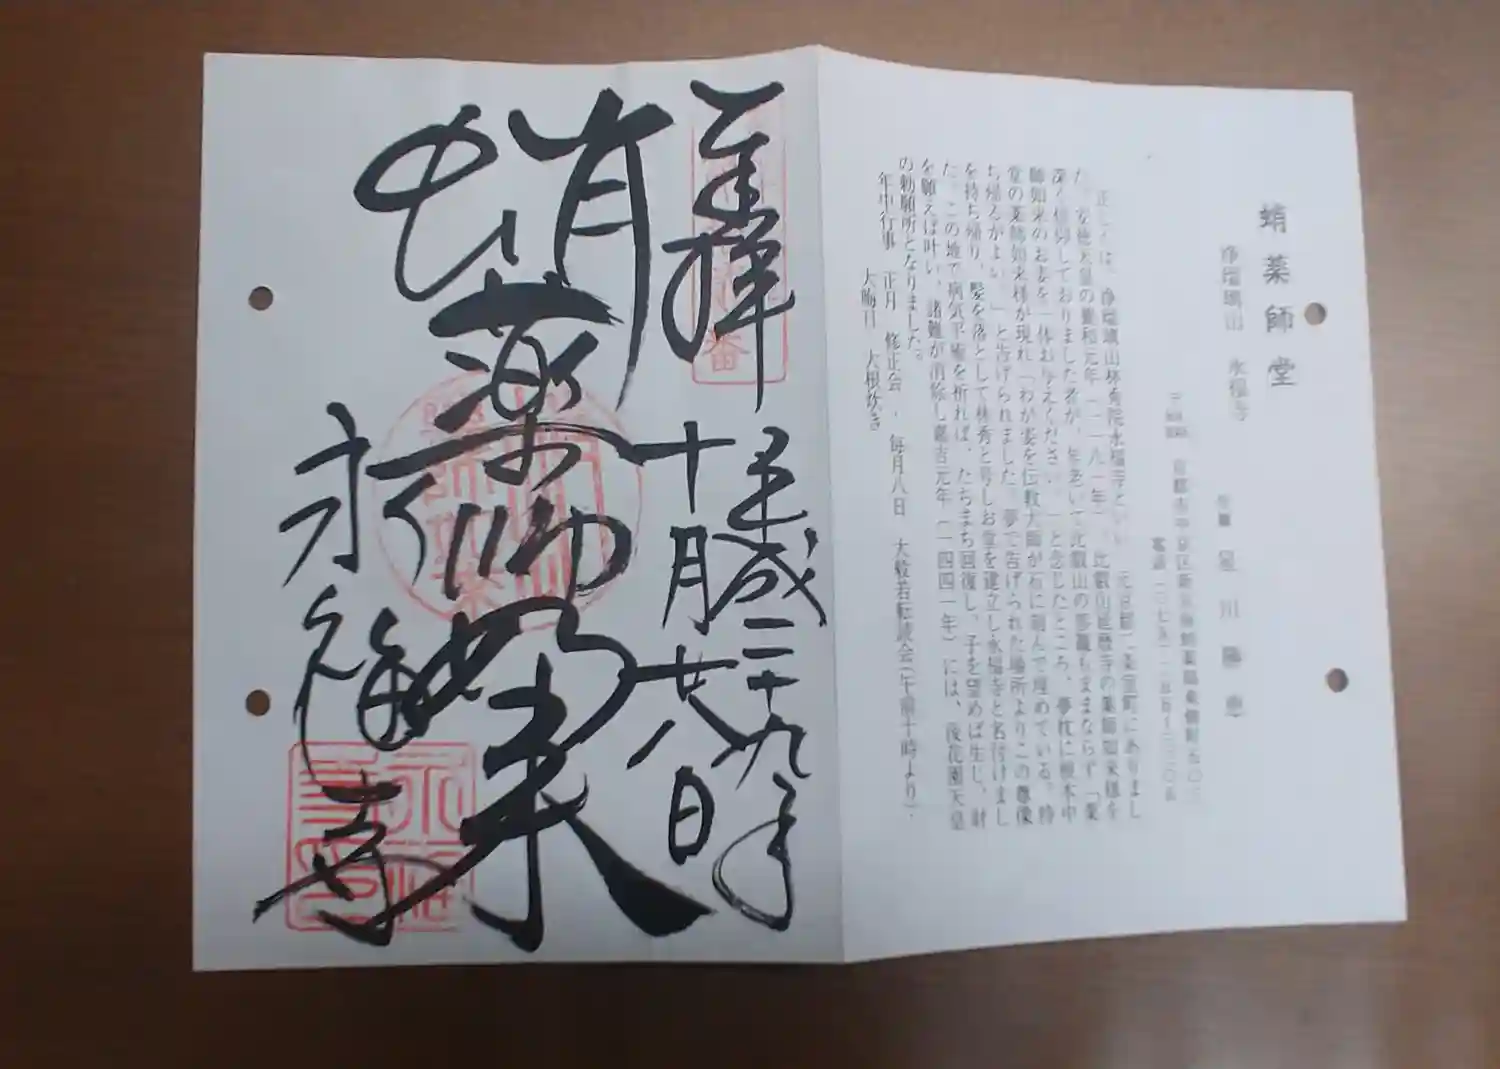 蛸薬師堂
浄瑠璃山　永福寺
正しくは、浄瑠璃山林秀院永福寺といい、元京都二条室町にありまし
た。安徳天皇の養和元年（一一八一年）、比叡山延暦寺の薬師如来様を
深く信仰しておりました者が、年老いて比叡山の参籠もままならず「薬
師如来のお姿を一体お与えください。」と念じたところ、夢枕に根本中
堂の薬師如来様が現れ「わが姿を伝教大師が石に刻んで埋めている。持
ち帰るがよい。」と告げられました。夢で告げられた場所よりこの尊像
を持ち帰り、髪を落として林秀と号しお堂を建立し永福寺と名付けまし
た。この地で病気平癒を祈れば、たちまち回復し、子を望めば生じ、財
を願えば叶い、諸難が消除し嘉吉元年（一四四一年）には、後花園天皇
の勅願所となりました。
年中行事　正月　修正会・毎月八日　大般若転読会（午前十時より）・
大晦日　大根炊き
奉拝　平成二十九年
十月廿八日
蛸薬師如来
永福寺